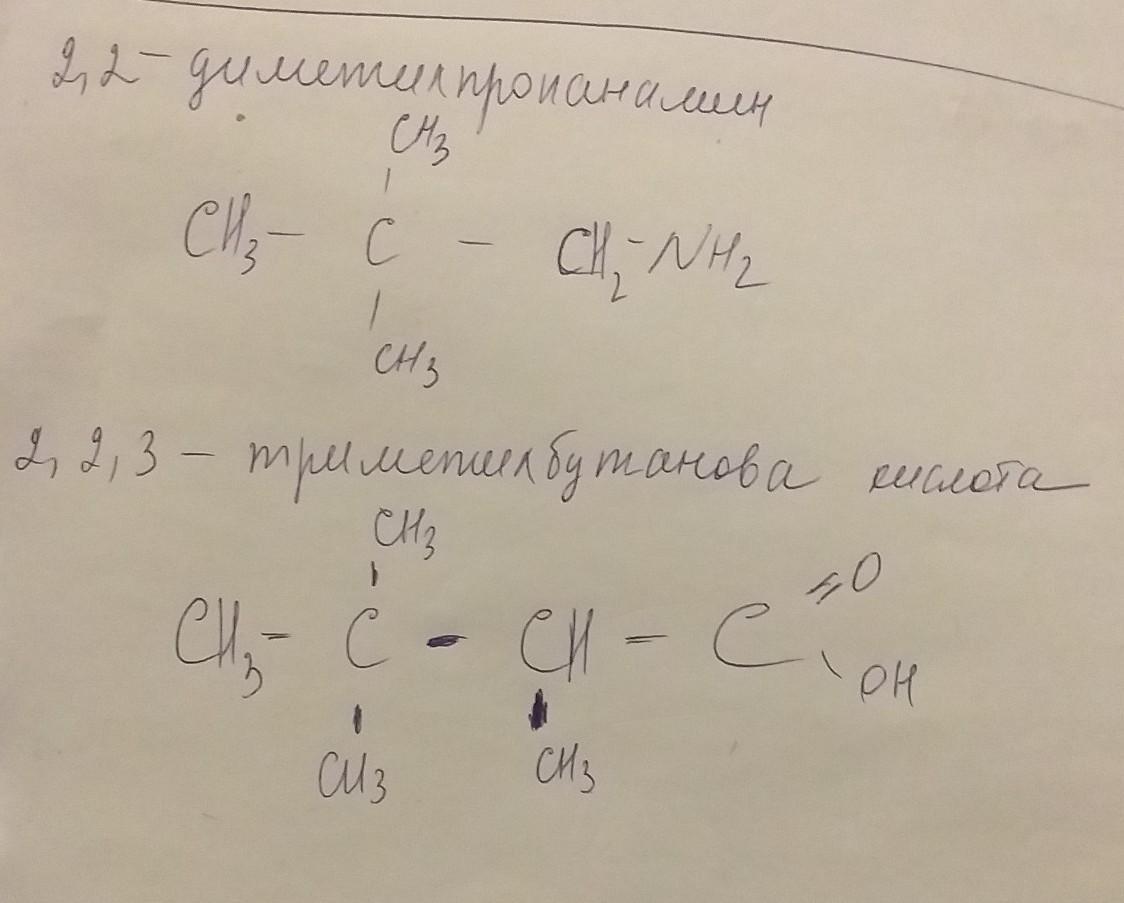 2,2-диметилпропанамин
CH3
CH3- C - CH2-NH2
CH3
2,2,3 - триметилбутанова кислота
CH3
=O
CH3- C - CH - C
OH
CH3 CH3